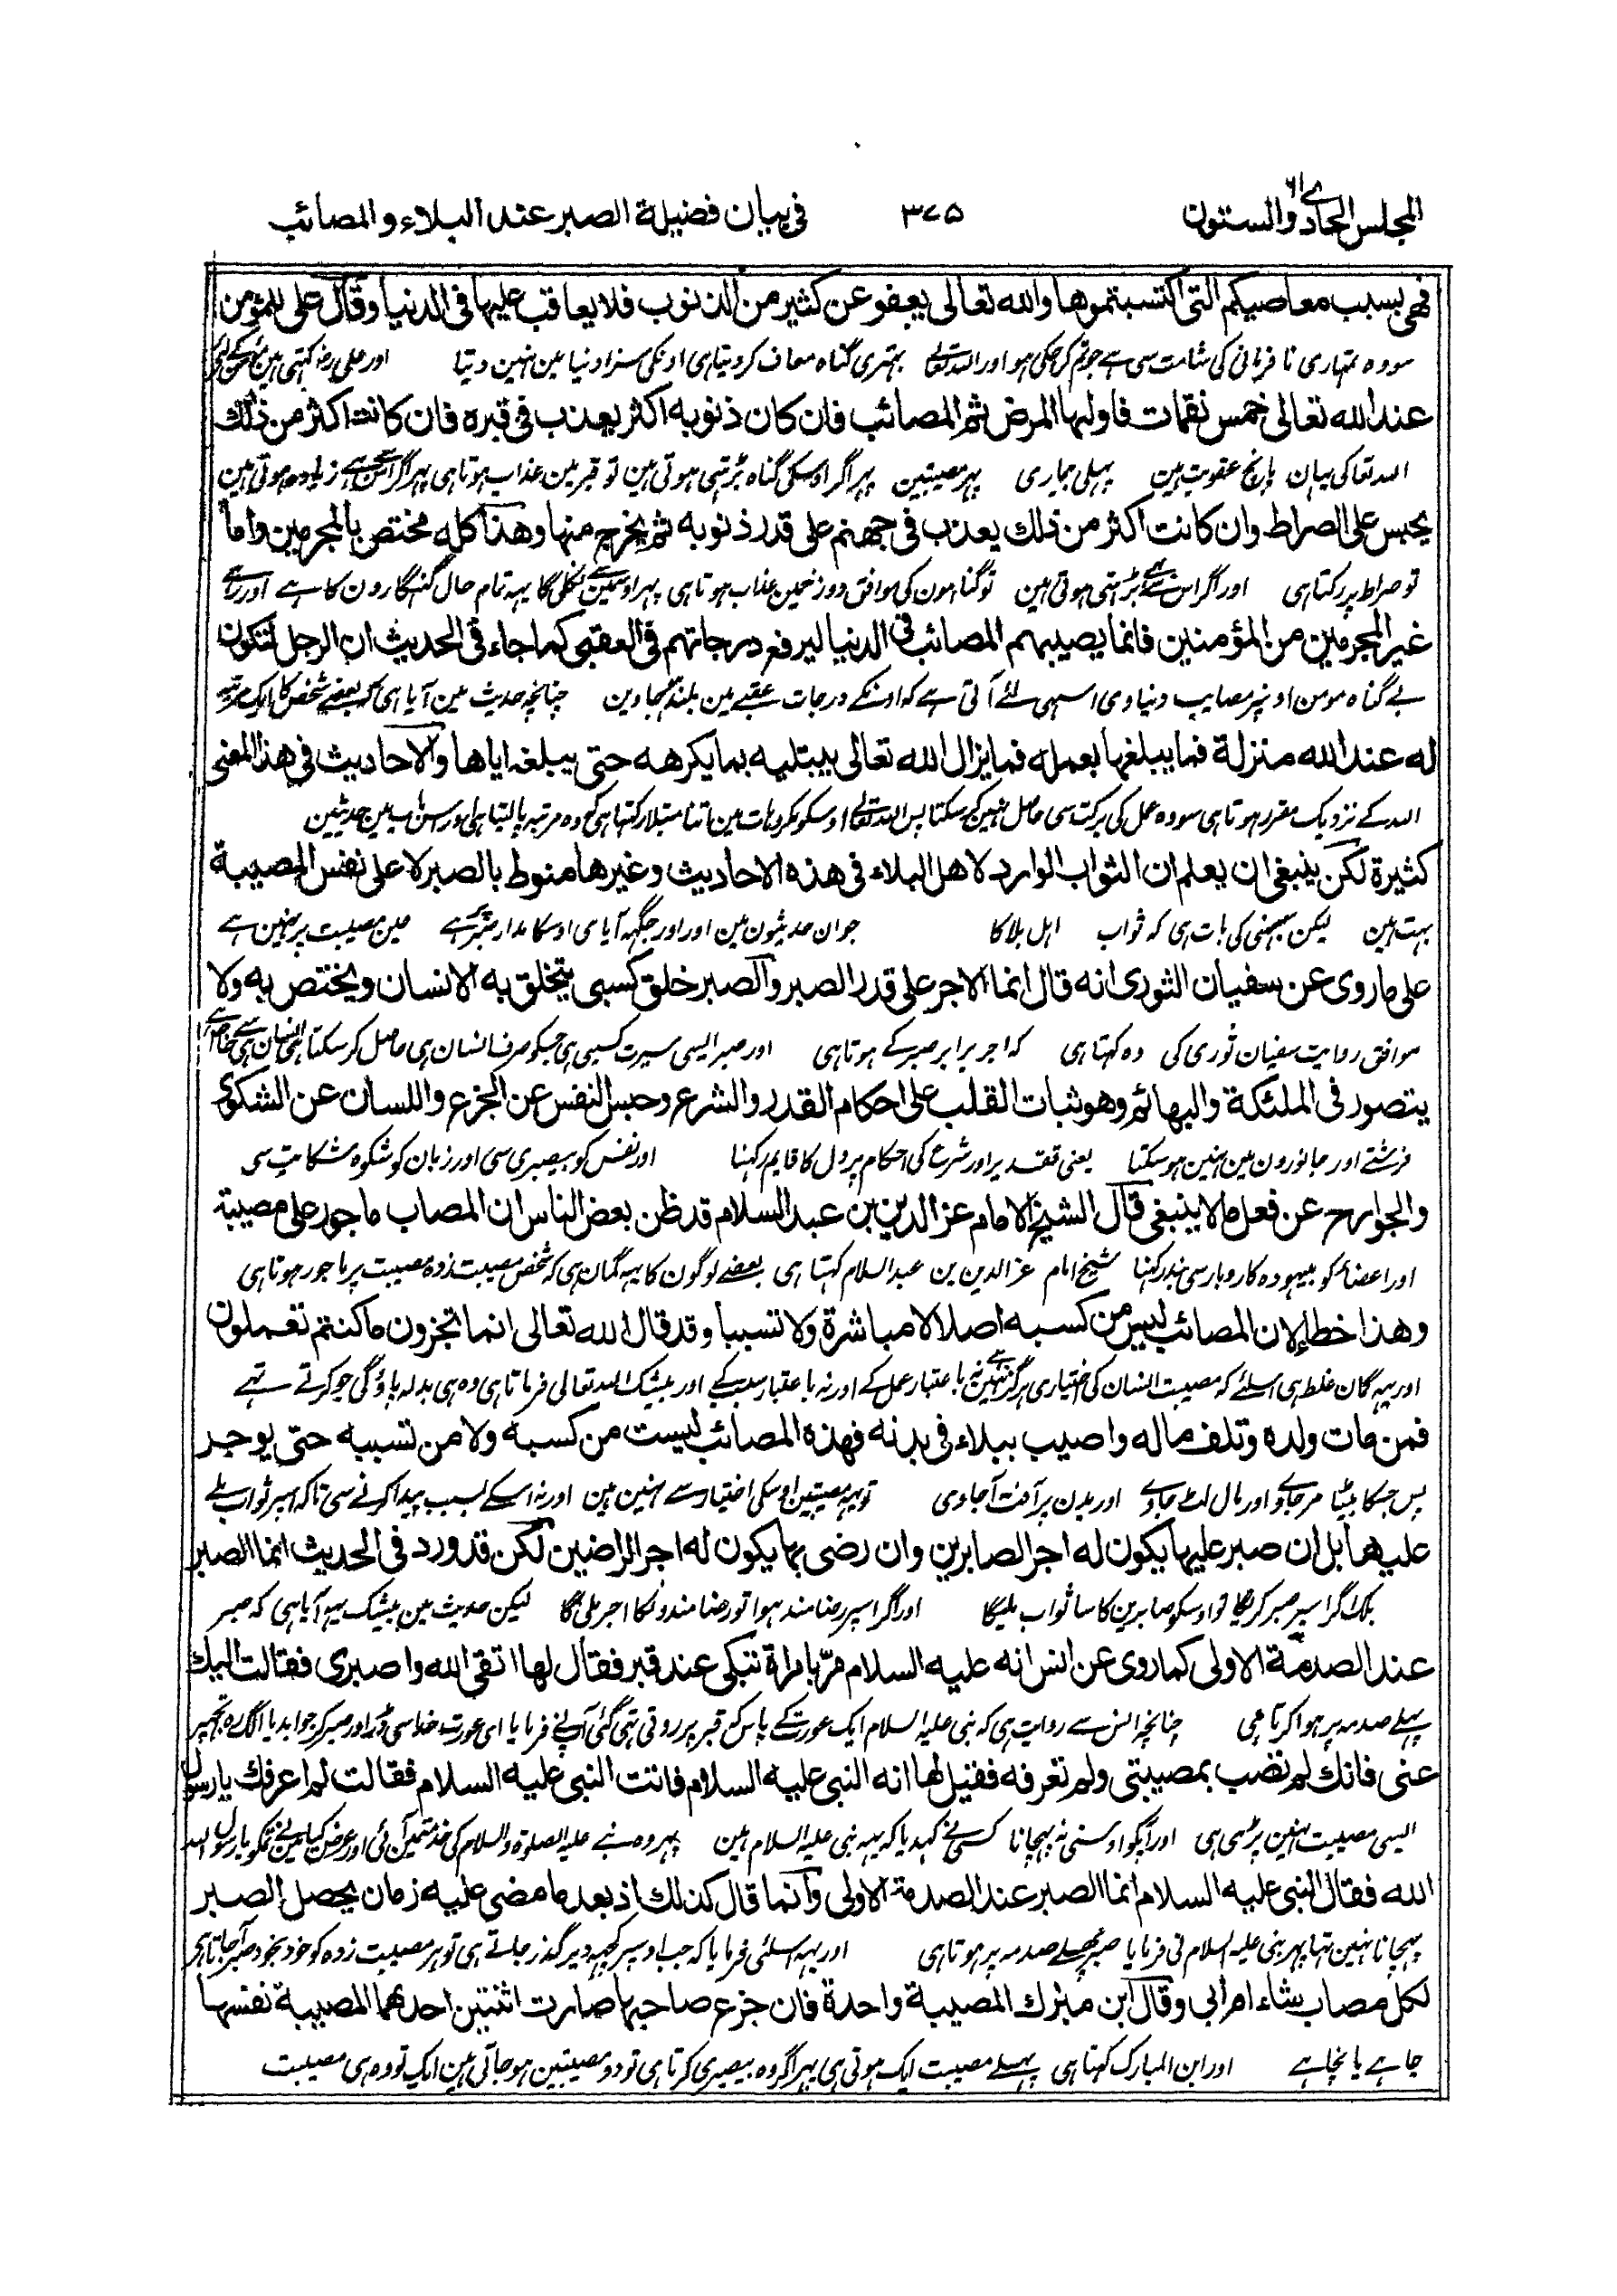 المجلس الحادي والستون ٣٧٥ في بيان فضيلة الصبر عند البلاء والمصائب
فهي بسبب معاصيكم التي اكتسبتموها والله تعالى يعفو عن كثير من الذنوب فلا يعاقب عليها في الدنيا وقال علي للمؤمن
سو وہ تمہاری نا فرمانی کی شامت سی ہے جو تم کر چکی ہو اور اللہ تعالے بہتری گناہ معاف کر دیتا ہی اونکی سزا دنیا مین نہین دیتا اور علی رضہ کہتی ہین
عند الله تعالى خمس نقمات فاولها المرض ثم المصائب فان كان ذنوبه اكثر يعذب في قبره فان كانت اكثر من ذلك
اللہ تعا کی یہان پانچ عقوبت ہین پہلی بیماری پہر مصیبتین پہر اگر اوسکی گناہ بڑہتی ہوتی ہین تو قبر مین عذاب ہوتا ہی پہر اگر اس سے زیادہ ہوتی ہین
يحبس على الصراط وان كانت اكثر من ذلك يعذب في جهنم على قدر ذنوبه ثم يخرج منها وهذا كله مختص بالمجرمين واما
تو صراط پر رکتا ہی اور اگر اس سے بڑہتی ہوتی ہین تو گناہون کی موافق دوزخمین عذاب ہوتا ہی پہر اوسمین سے نکلی گا یہہ تمام حال گنہگارون کا ہے اور رہے
غير المجرمين من المؤمنين فانما يصيبهم المصائب في الدنيا ليرفع درجاتهم في العقبى كما جاء في الحديث ان الرجل لتكون
بے گناہ مومن اونپر مصایب دنیاوی اسہی لئے آتی ہے کہ اونکے درجات عقبے مین بلند ہو جاوین چنانچہ حدیث مین آیا ہی کہ بعضے شخص کا ایک مرتبہ
له عند الله منزلة فما يبلغها بعمله فما يزال الله تعالى يبتليه بما يكرهه حتى يبلغه اياها والاحاديث في هذا المعنى
اللہ کے نزدیک مقرر ہوتا ہی سو وہ عمل کی برکت سی حاصل نہین کر سکتا پس اللہ تعالے اوسکو مکروہات مین اتنا مبتلا رکتہا ہی کہ وہ مرتبہ پا لیتا ہی اور اس باب مین حدیثین
كثيرة لكن ينبغي ان يعلم ان الثواب الوارد لاهل البلاء في هذه الاحاديث وغيرها منوط بالصبر لا على نفس المصيبة
بہت ہین لیکن سمجہنی کی بات ہی کہ ثواب اہل بلا کا جو ان حدیثون مین اور اور جگہہ آیا ہی اوسکا مدار صبر پر ہے عین مصیبت پر نہین ہے
على ما روى عن سفيان الثوري انه قال انما الاجر على قدر الصبر والصبر خلق كسبي يتخلق به الانسان ويختص به ولا
موافق روایت سفیان ثوری کی وہ کہتا ہی کہ اجر برابر صبر کے ہوتا ہی اور صبر ایسی سیرت کسبی ہی جسکو صرف انسان ہی حاصل کر سکتا ہی
يتصور في الملئكة والبهائم وهو ثبات القلب على احكام القدر والشرع وحبس النفس عن الجزع واللسان عن الشكوى
فرشتے اور جانورون مین نہین ہو سکتا یعنی تقدیر اور شرع کی احکام پر دل کا قایم رکہنا اور نفس کو بیصبری سی اور زبان کو شکوہ شکایت سی
والجوارح عن فعل ما لا ينبغي قال الشيخ الامام عز الدين بن عبد السلام قد ظن بعض الناس ان المصاب ماجور على مصيبة
اور اعضاء کو بیہودہ کاروبار سی بند رکہنا شیخ امام عز الدین بن عبد السلام کہتا ہی بعضے لوگون کا یہہ گمان ہی کہ شخص مصیبت زدہ مصیبت پر ماجور ہوتا ہی
وهذا خطا لان المصائب ليس من كسبه اصلا لا مباشرة ولا تسببا وقد قال الله تعالى انما تجزون ما كنتم تعملون
اور یہہ گمان غلط ہی اسلئے کہ مصیبت انسان کی اختیاری ہرگز نہین ہے نہ با اعتبار عمل کے اور نہ با عتبار سبب کے اور بیشک اللہ تعالی فرماتا ہی وہ ہی بدلہ پاؤگی جو کرتے تہے
فمن مات ولده وتلف ماله واصيب ببلاء في بدنه فهذه المصائب ليست من كسبه ولا من تسببه حتى يوجر
پس جسکا بیٹا مر جاوے اور مال لٹ جاوے اور بدن پر آفت آجاوی تو یہہ مصیبتین اوسکی اختیار سے نہین ہین اور نہ اسکے سبب پیدا کرنے سی تاکہ اسپر ثواب ملے
عليها بل ان صبر عليها يكون له اجر الصابرين وان رضى بها يكون له اجر الراضين لكن قد ورد في الحديث انما الصبر
بلکہ اگر اسپر صبر کریگا تو اوسکو صابرین کا سا ثواب ملیگا اور اگر اسپر رضامند ہوا تو رضامندونکا اجر ملی گا لیکن حدیث مین بیشک یہہ آیا ہی کہ صبر
عند الصدمة الاولى كما روى عن انس انه عليه السلام مرّ بامراة تبكي عند قبر فقال لها اتقي الله واصبري فقالت اليك
پہلے صدمہ پر ہوا کرتا ہی چنانچہ انس سے روایت ہی کہ نبی علیہ السلام ایک عورت کے پاس کو قبر پر روتی تہی گئی آپ نے فرمایا ای عورت خدا سی ڈر اور صبر کر جواب دیا
عني فانك لم تصب بمصيبتي ولم تعرفه فقيل لها انه النبي عليه السلام فاتت النبي عليه السلام فقالت لم اعرفك يا رسول
ایسی مصیبت نہین پڑہی ہی اور آپکو اوسنی نہ پہچانا کسی نے کہدیا کہ یہہ نبی علیہ السلام ہین پہر وہ نبے علیہ الصلوۃ والسلام کی خدمتمین آئی اور عرض کیا مین نے تمکو یا رسول اللہ
الله فقال النبي عليه السلام انما الصبر عند الصدمة الاولى وانما قال كذلك اذ بعد ما مضى عليه زمان يحصل الصبر
پہچانا نہین تہا پہر نبی علیہ السلام نی فرمایا صبر پہلے صدمہ پر ہوتا ہی اور یہہ اسلئی فرمایا کہ جب اوسپر کچہہ دیر گذر جاتے ہی تو ہر مصیبت زدہ کو خود بخود صبر آ جاتا ہی
لكل مصاب شاء ام ابى وقال ابن مبرك المصيبة واحدة فان جزع صاحبها صارت اثنتين احدهما المصيبة نفسها
چاہے یا نچاہے اور ابن المبارک کہتا ہی پہلے مصیبت ایک ہوتی ہی پہر اگر وہ بیصبری کرتا ہی تو دو مصیبتین ہو جاتی ہین ایک تو وہ ہی مصیبت